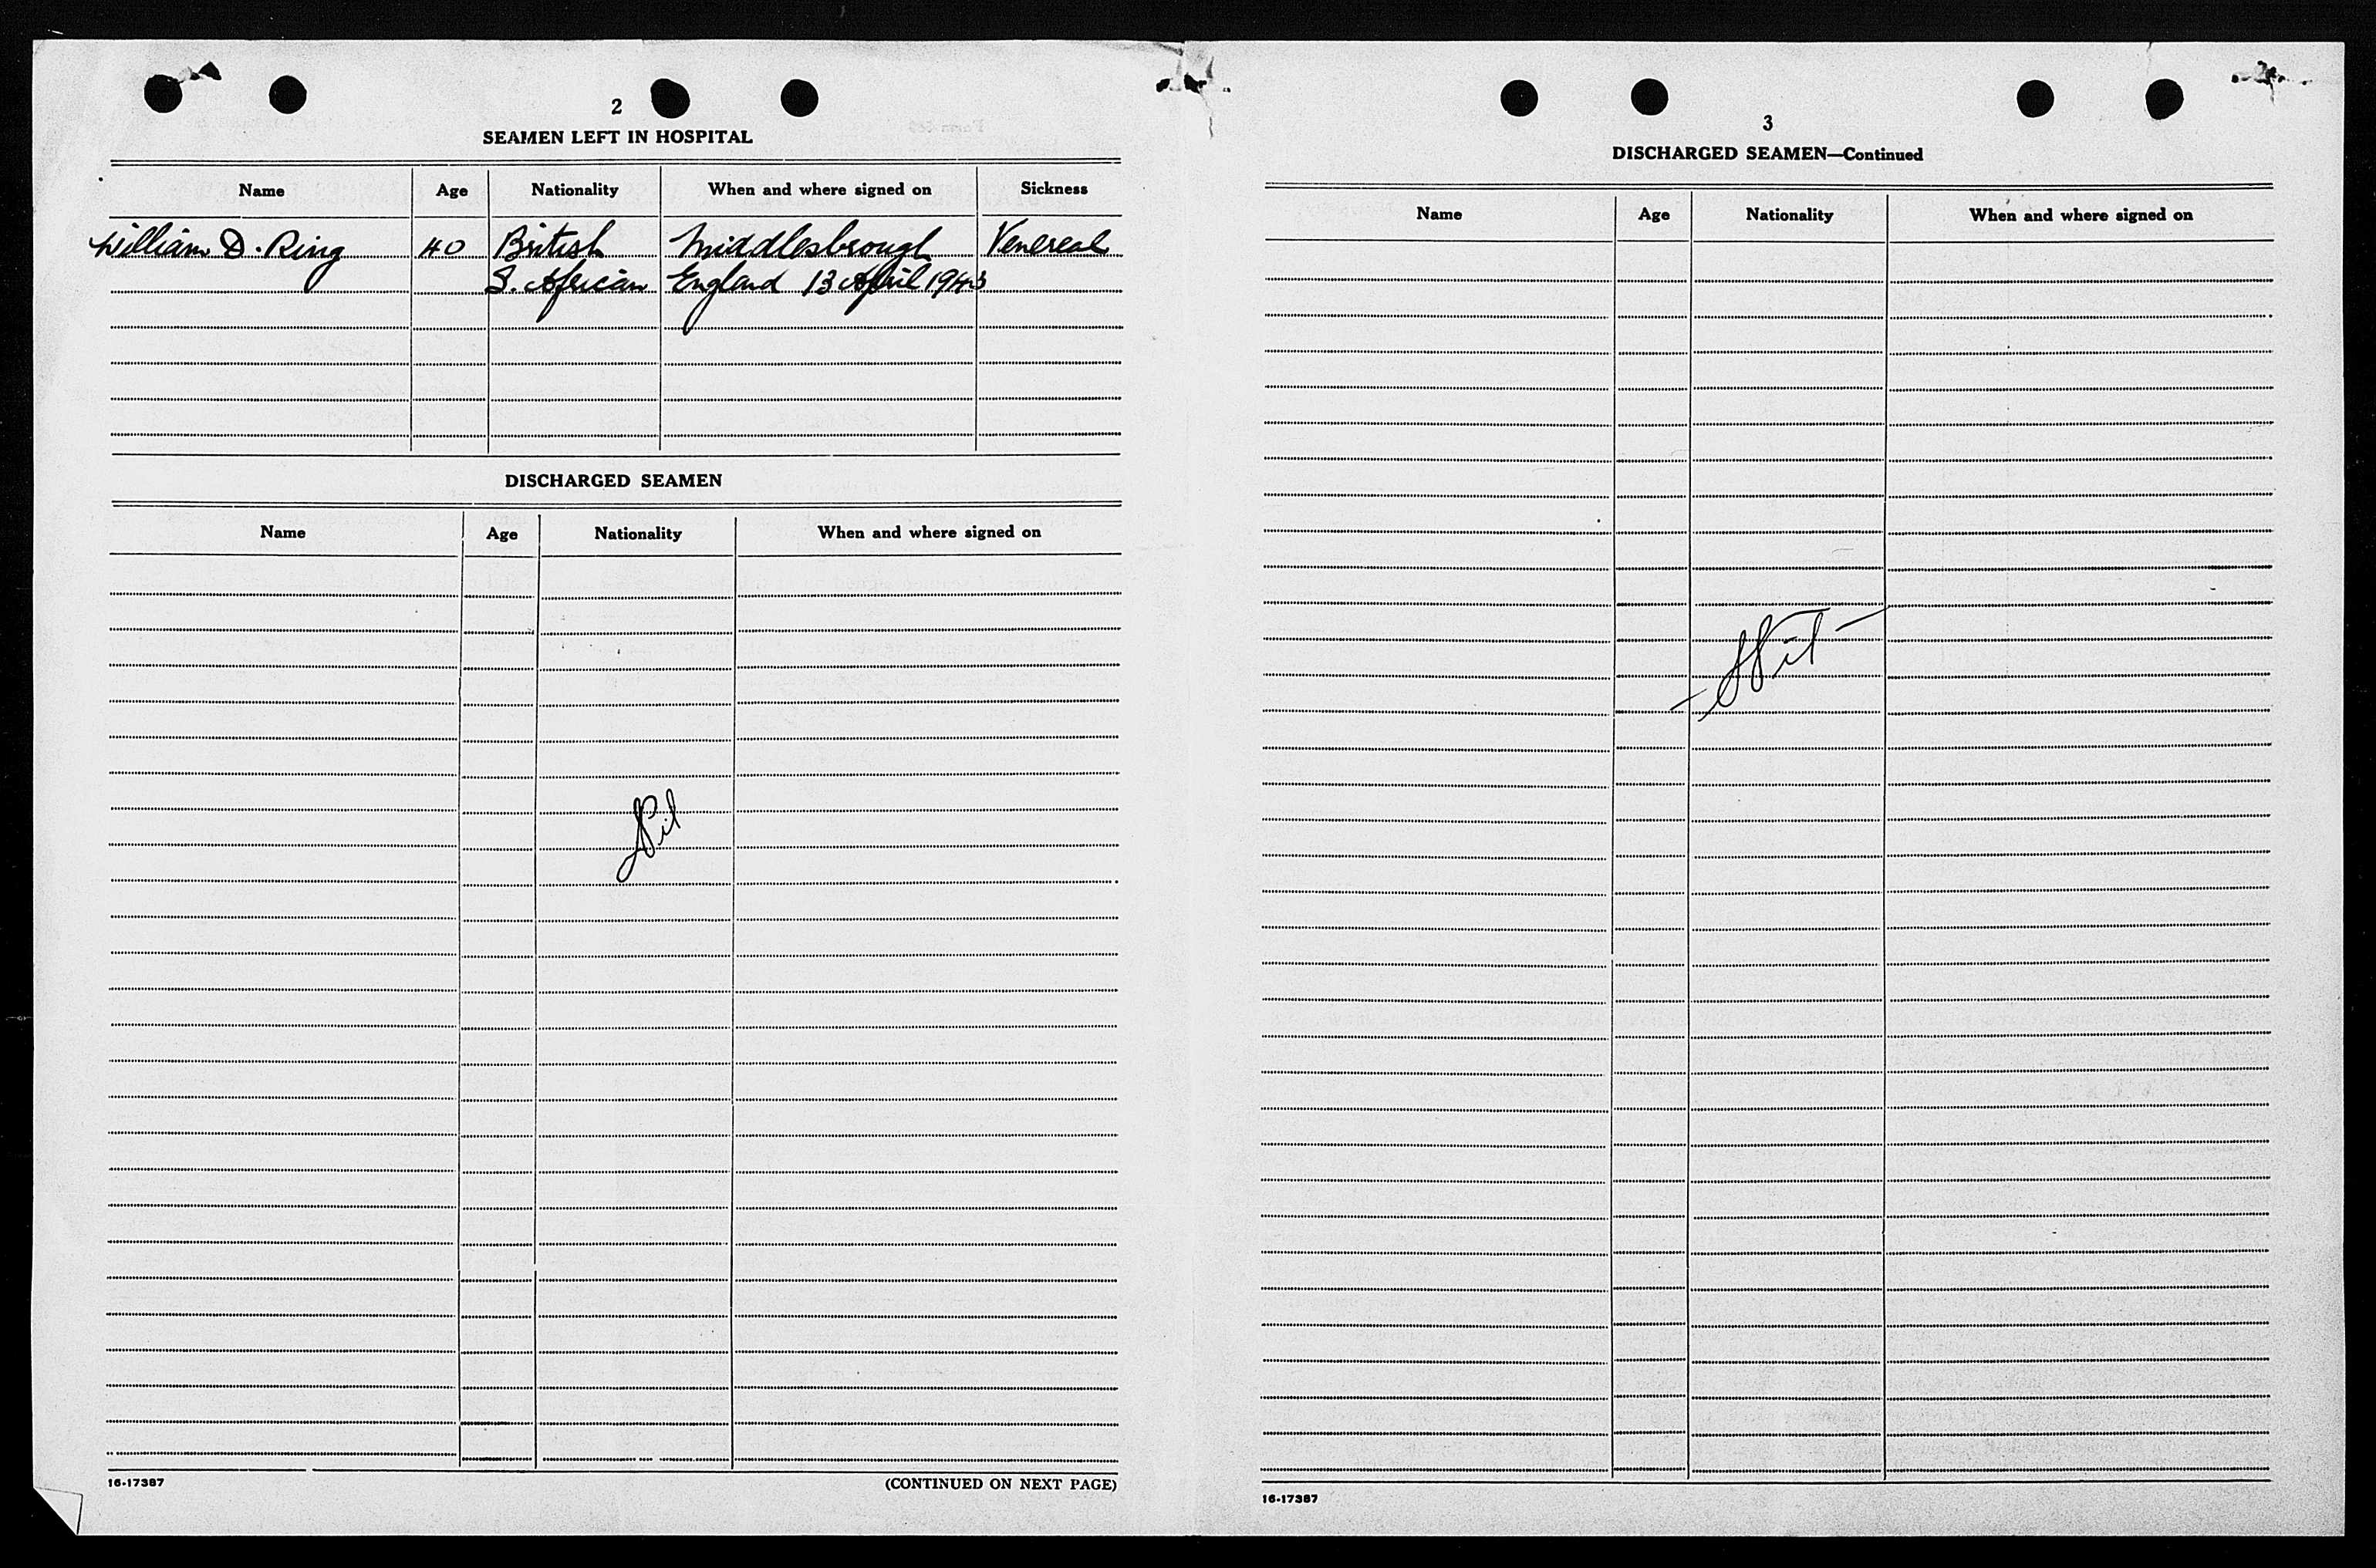 2
SEAMEN LEFT IN HOSPITAL
Name Age Nationality When and where signed on Sickness
William D. Ring 40 British Middlesbrough Venereal
S. African England 13 April 1943
DISCHARGED SEAMEN
Name Age Nationality When and where signed on
Nil
16-17387 (CONTINUED ON NEXT PAGE)
3
DISCHARGED SEAMEN—Continued
Name Age Nationality When and where signed on
- Nil -
16-17387